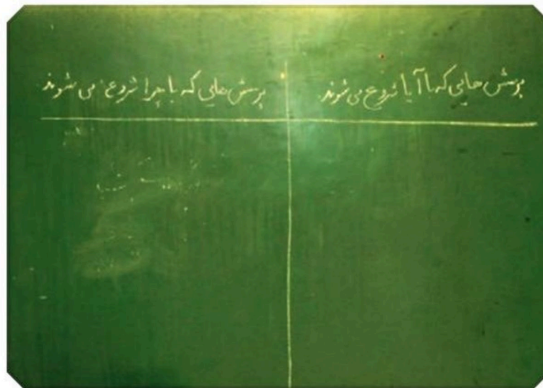 پرسش هایی که با آیا شروع می شوند
پرسش هایی که با چرا شروع می شوند